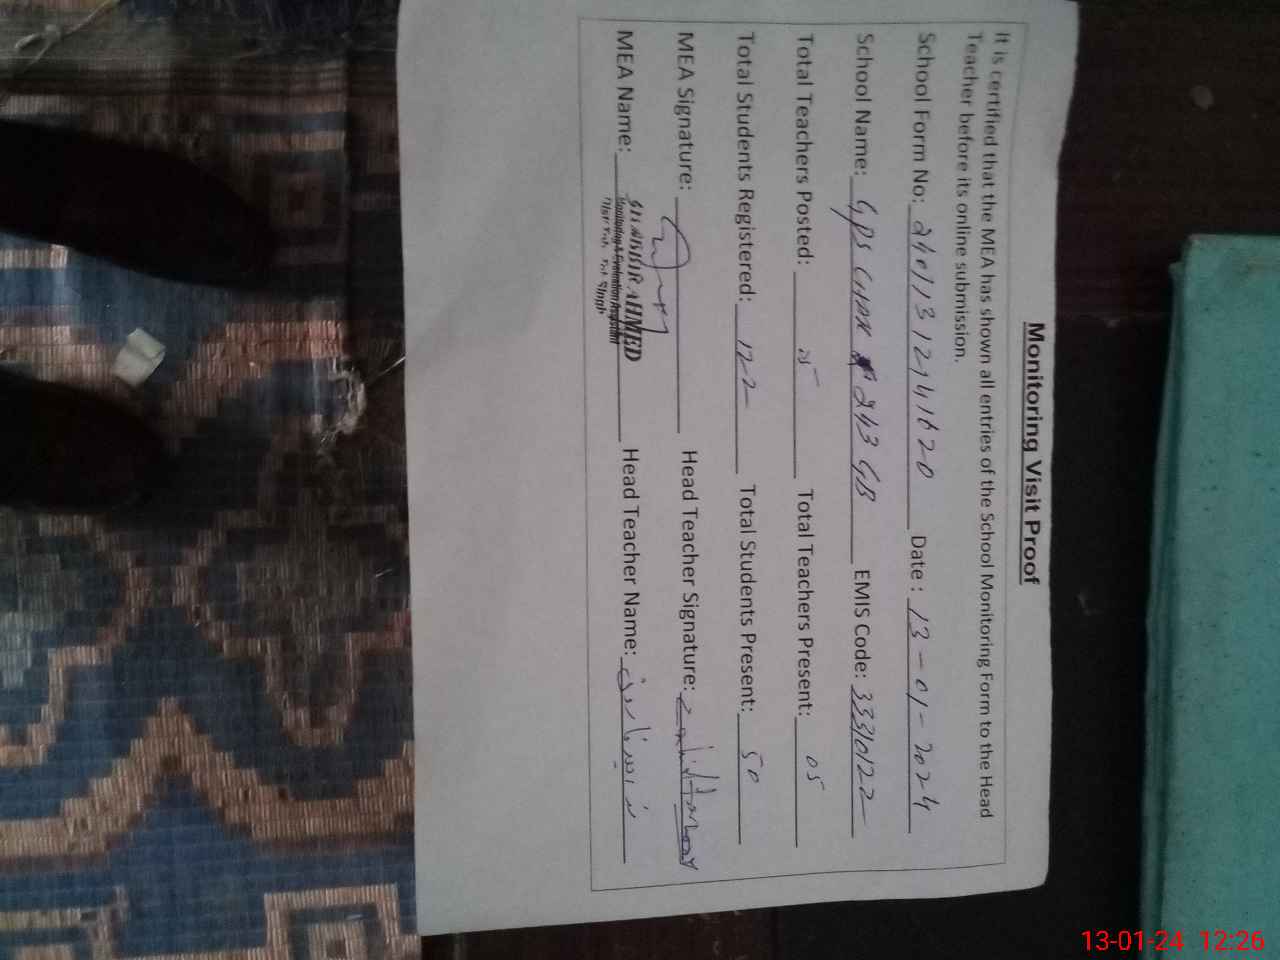 Monitoring Visit Proof
It is certified that the MEA has shown all entries of the School Monitoring Form to the Head
Teacher before its online submission.
School Form No: Date: 13-01-2024
School Name: GPS CHAK 243 GB EMIS Code: 33310122
Total Teachers Posted: 05 Total Teachers Present: 05
Total Students Registered: 122 Total Students Present: 50
MEA Signature: Head Teacher Signature:
MEA Name: SHABBIR AHMED Head Teacher Name:
Monitoring & Evaluation Assistant
13-01-24 12:26